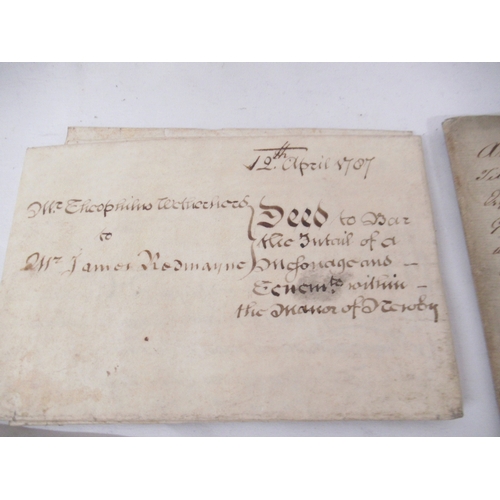 12th. April 1787
Mr. Theophilus
to
Mr. James Redmayne
Deed to Bar
the Intail of a
Messuage and
Tenemt. within
the Manor of Newby